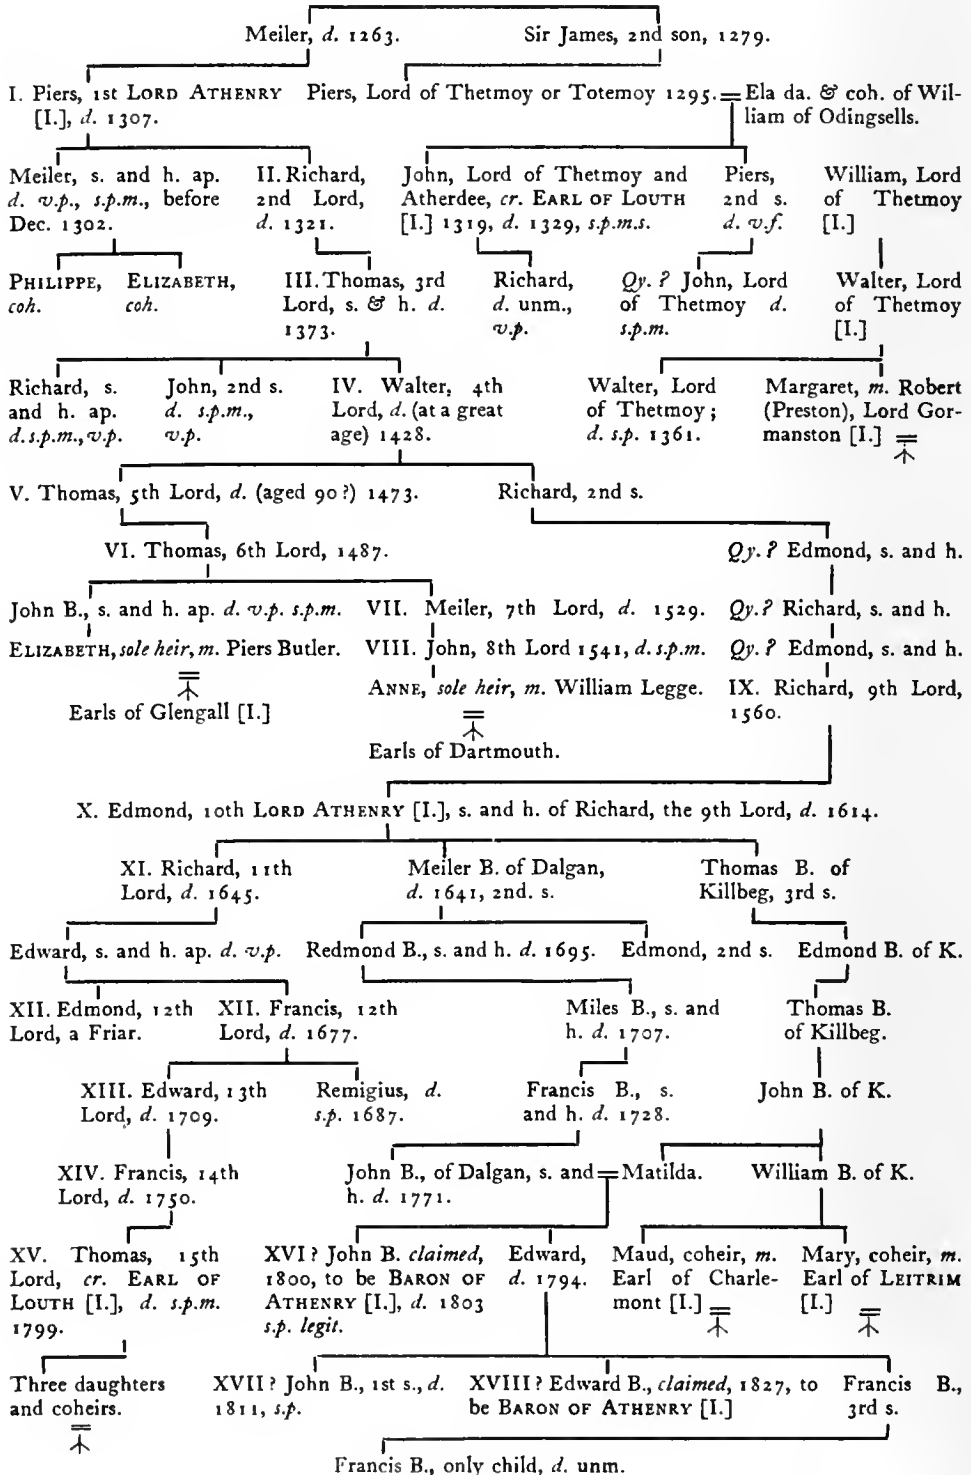 Meiler, d. 1263. Sir James, 2nd son, 1279.
I. Piers, 1st LORD ATHENRY
[I.], d. 1307.
Piers, Lord of Thetmoy or Totemoy 1295.
Ela da. & coh. of Wil-
liam of Odingsells.
Meiler, s. and h. ap.
d. v.p., s.p.m., before
Dec. 1302.
II. Richard,
2nd Lord,
d. 1321.
John, Lord of Thetmoy and
Atherdee, cr. EARL OF LOUTH
[I.] 1319, d. 1329, s.p.m.s.
Piers,
2nd s.
d. v.f.
William, Lord
of Thetmoy
[I.]
PHILIPPE,
coh.
ELIZABETH,
coh.
III. Thomas, 3rd
Lord, s. & h. d.
1373.
Richard,
d. unm.,
v.p.
Qy. ? John, Lord
of Thetmoy d.
s.p.m.
Walter, Lord
of Thetmoy
[I.]
Richard, s.
and h. ap.
d.s.p.m., v.p.
John, 2nd s.
d. s.p.m.,
v.p.
IV. Walter, 4th
Lord, d. (at a great
age) 1428.
Walter, Lord
of Thetmoy;
d. s.p. 1361.
Margaret, m. Robert
(Preston), Lord Gor-
manston [I.]
V. Thomas, 5th Lord, d. (aged 90?) 1473.
Richard, 2nd s.
VI. Thomas, 6th Lord, 1487.
Qy. ? Edmond, s. and h.
John B., s. and h. ap. d. v.p. s.p.m.
VII. Meiler, 7th Lord, d. 1529.
Qy. ? Richard, s. and h.
ELIZABETH, sole heir, m. Piers Butler.
VIII. John, 8th Lord 1541, d. s.p.m.
Qy. ? Edmond, s. and h.
Earls of Glengall [I.]
ANNE, sole heir, m. William Legge.
IX. Richard, 9th Lord,
1560.
Earls of Dartmouth.
X. Edmond, 10th LORD ATHENRY [I.], s. and h. of Richard, the 9th Lord, d. 1614.
XI. Richard, 11th
Lord, d. 1645.
Meiler B. of Dalgan,
d. 1641, 2nd. s.
Thomas B. of
Killbeg, 3rd s.
Edward, s. and h. ap. d. v.p.
Redmond B., s. and h. d. 1695.
Edmond, 2nd s.
Edmond B. of K.
XII. Edmond, 12th
Lord, a Friar.
XII. Francis, 12th
Lord, d. 1677.
Miles B., s. and
h. d. 1707.
Thomas B.
of Killbeg.
XIII. Edward, 13th
Lord, d. 1709.
Remigius, d.
s.p. 1687.
Francis B., s.
and h. d. 1728.
John B. of K.
XIV. Francis, 14th
Lord, d. 1750.
John B., of Dalgan, s. and
h. d. 1771.
Matilda.
William B. of K.
XV. Thomas, 15th
Lord, cr. EARL OF
LOUTH [I.], d. s.p.m.
1799.
XVI ? John B. claimed,
1800, to be BARON OF
ATHENRY [I.], d. 1803
s.p. legit.
Edward,
d. 1794.
Maud, coheir, m.
Earl of Charle-
mont [I.]
Mary, coheir, m.
Earl of LEITRIM
[I.]
Three daughters
and coheirs.
XVII ? John B., 1st s., d.
1811, s.p.
XVIII ? Edward B., claimed, 1827, to
be BARON OF ATHENRY [I.]
Francis B.,
3rd s.
Francis B., only child, d. unm.